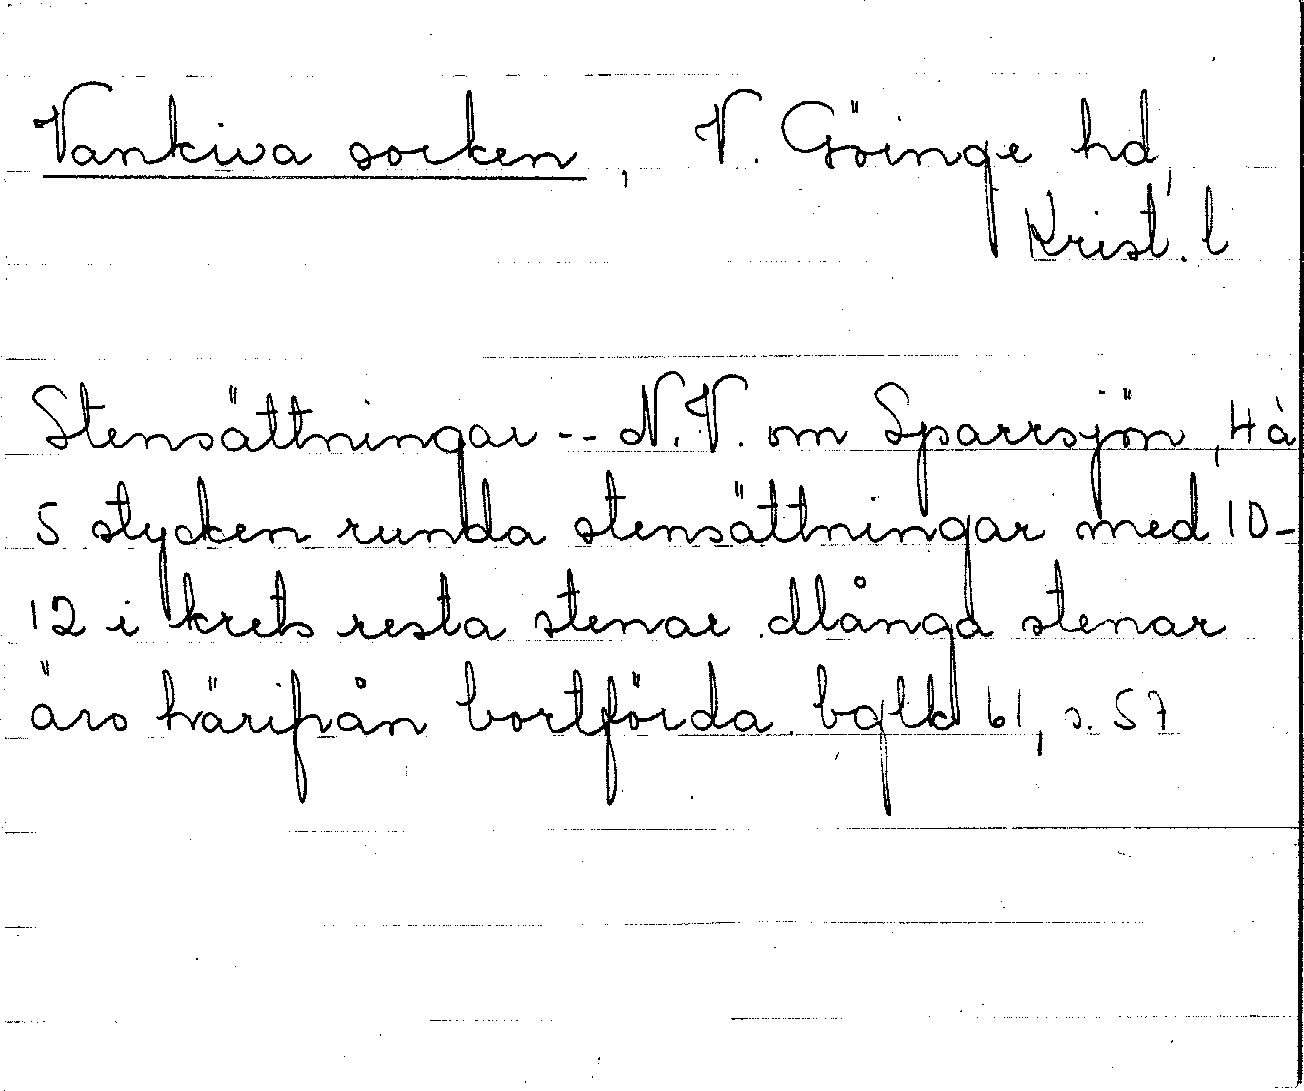 Vankiva socken, V. Göinge hd,
Krist. l
Stensättningar -- N.V. om Sparrsjön, 4 à
5 stycken runda stensättningar med 10-
12 i krets resta stenar. Många stenar
äro härifrån bortförda. bglk 61, s. 57